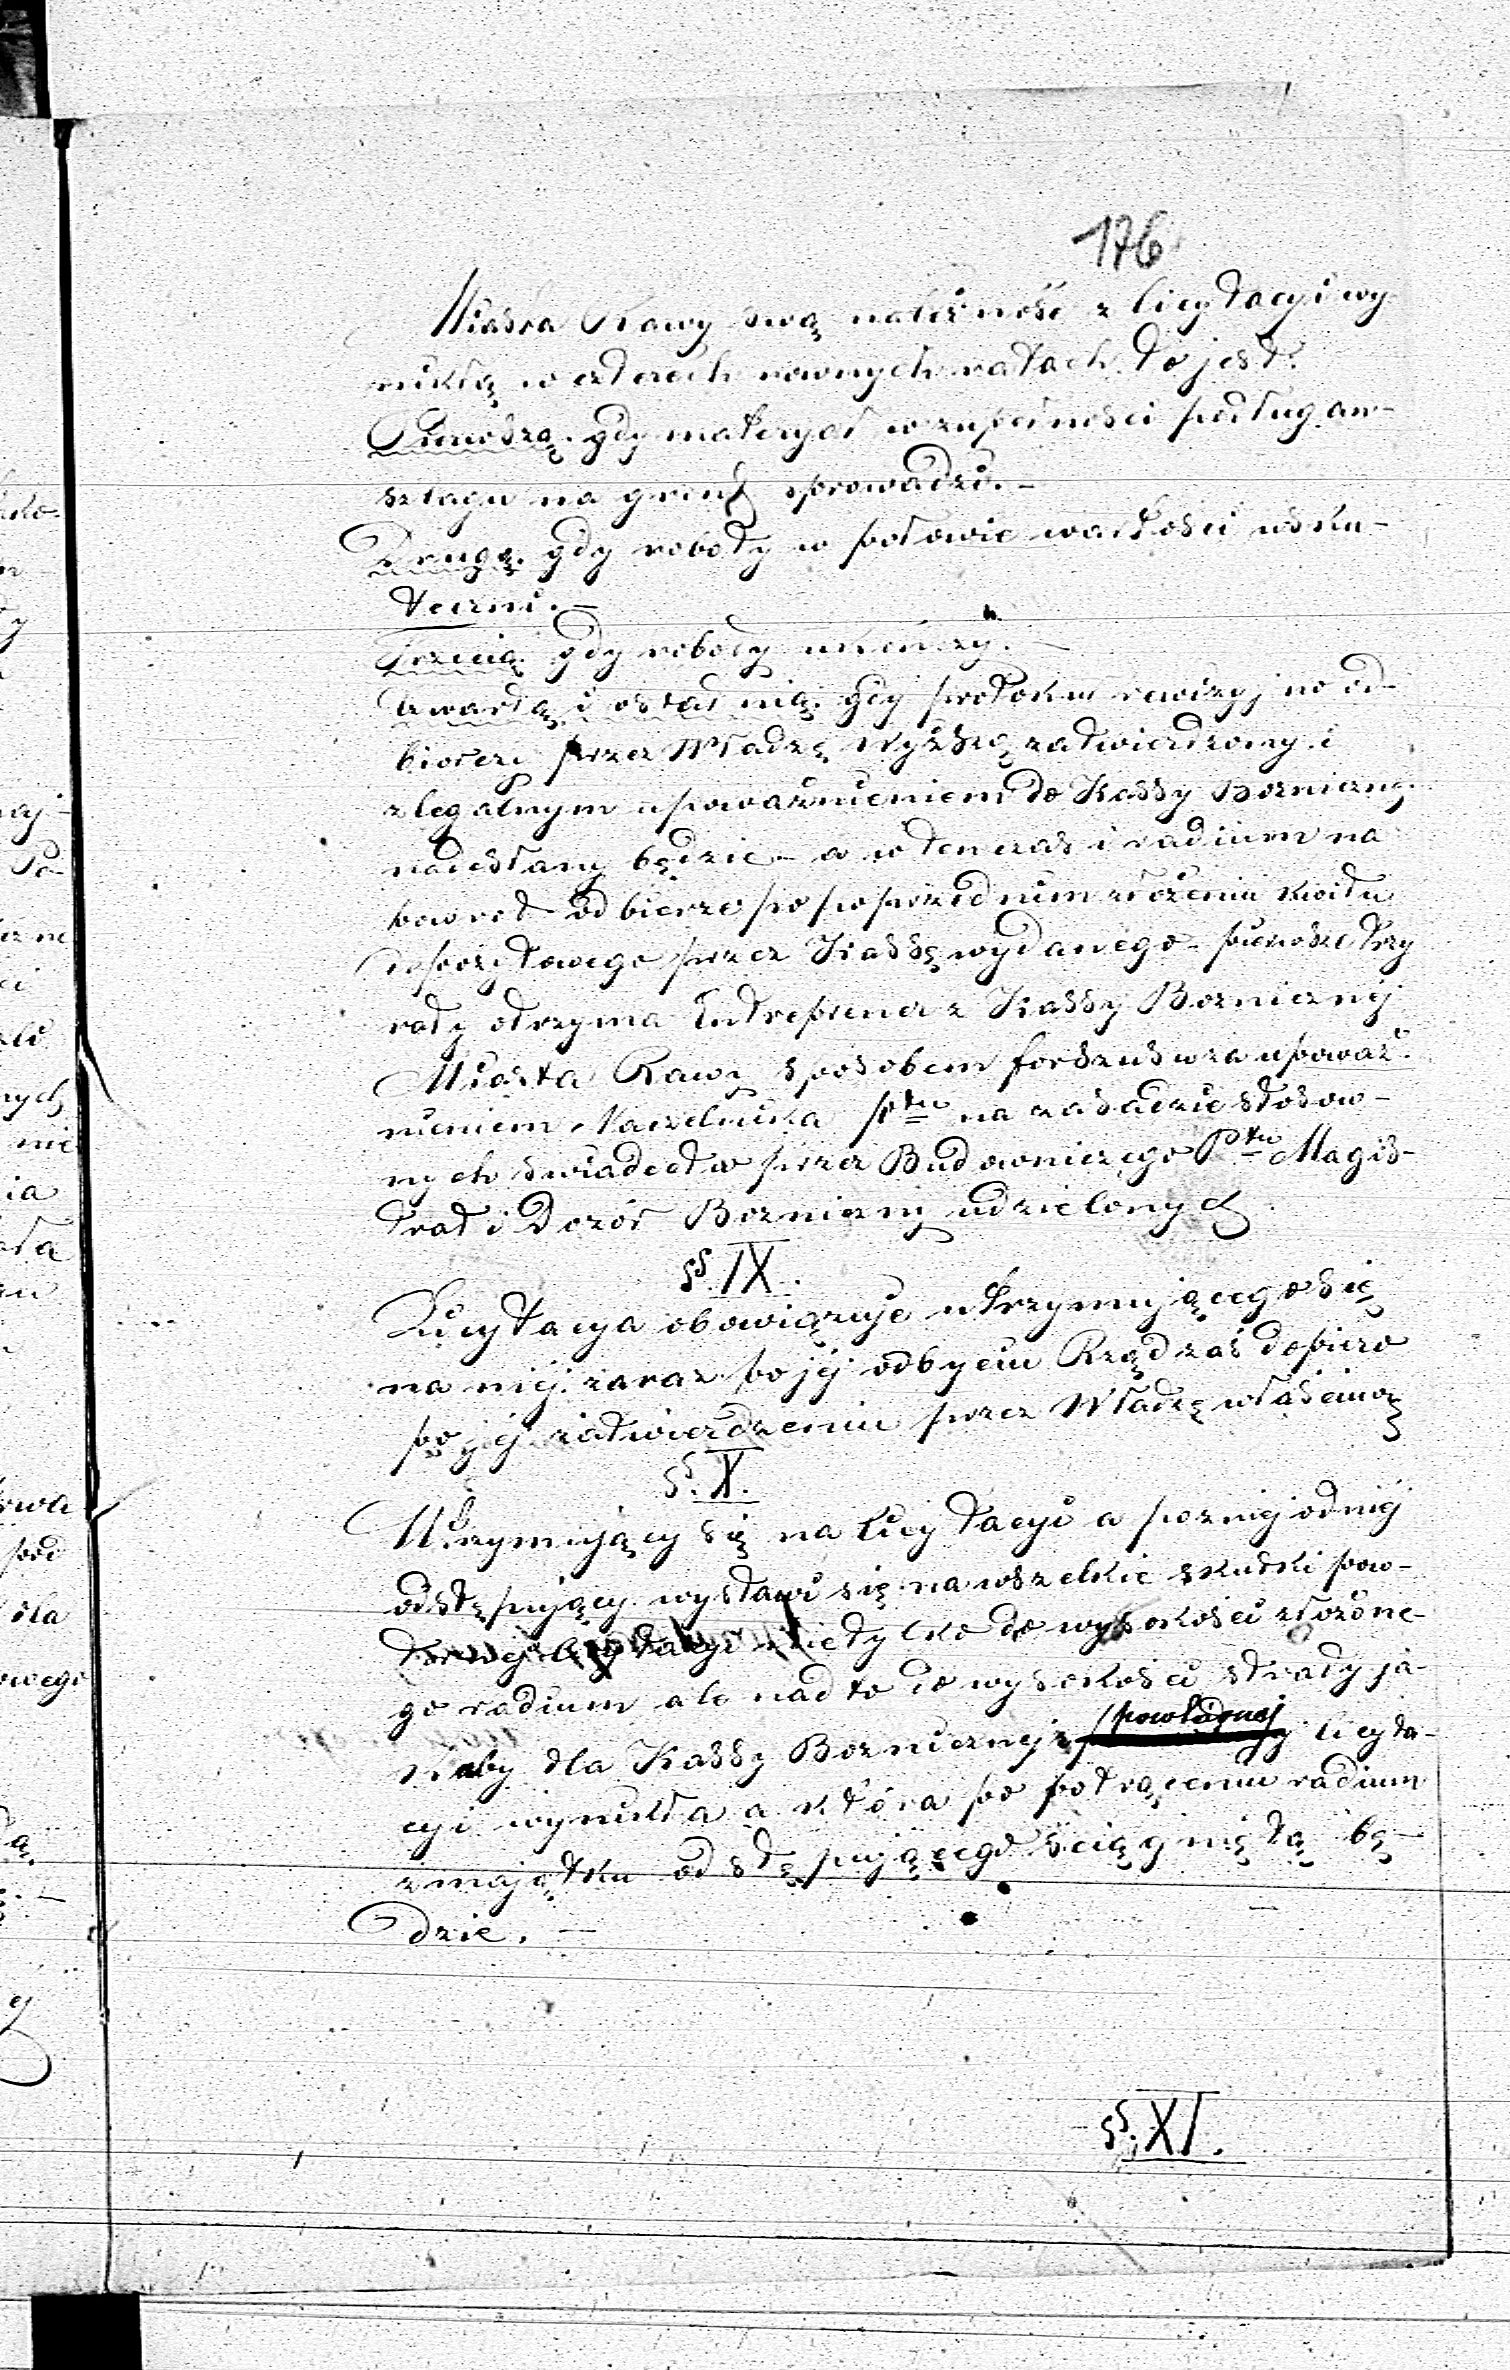 176
Miasta Rawy swą należność z licytacyi wy-
nikłą w czterech rownych ratach to jest:
Pierwszą. gdy materyał w zupełności podług an-
szlagu na grunt sprowadzi. –
Drugą. gdy roboty w połowie wartości usku-
teczni. –
Trzecią gdy roboty ukończy. –
Czwartą i ostatnią. gdy protokuł rewizyjno od-
biorczy przez Władzę Wyższą zatwierdzony i
z legalnym upoważnieniem do Kassy Bozniczny
nadesłany będzie – a w ten czas i vadium na
powrot odbierze po poprzednim złożeniu kwitu
depozytowego przez Kassę wydanego – pierwsze trzy
raty otrzyma Entreprener z Kassy Boznicznej
Miasta Rawy sposobem forszusu za upoważ-
nieniem Naczelnika Ptu na zasadzie stosow-
nych swiadectw przez Budowniczego Ptu Magis-
trat i Dozór Bozniczny udzielonych
§ IX.
Licytacya obowiązuje utrzymującego się
na niej zaraz po jej odbyciu Rząd zaś dopiero
po jej zatwierdzeniu przez Władzę właściwą
§. X.
Utrzymujący się na licytacyi a pozniej od niej
odstępujący wystawi się na wszelkie skutki pow-
tornej licytacyi nie tylko do wysokości złożone-
go vadium ale nadto do wysokości straty ja-
kaby dla Kassy Boznicznej z powtórnej licyta-
cyi wynikła a która po potrąceniu vadium
z majątku odstępującego ściągniętą bę-
dzie. –
§. XI.